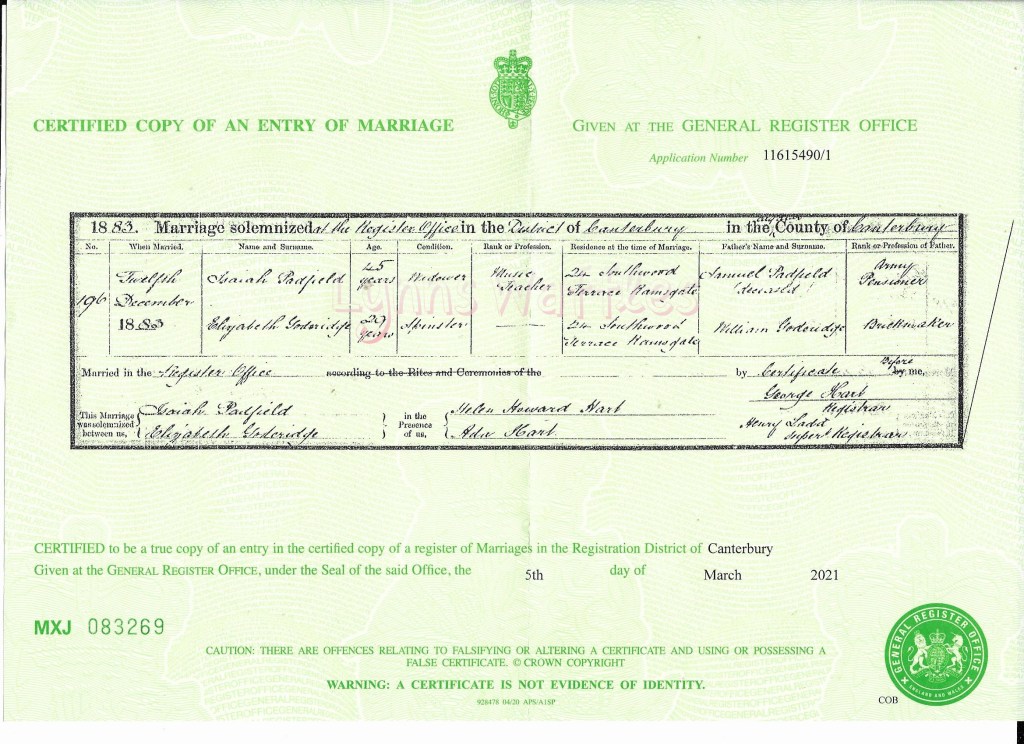 CERTIFIED COPY OF AN ENTRY OF MARRIAGE
GIVEN AT THE GENERAL REGISTER OFFICE
Application Number 11615490/1
1883. Marriage solemnized at the Register Office in the District of Canterbury in the County of Canterbury
No. When Married. Name and Surname. Age. Condition. Rank or Profession. Residence at the time of Marriage. Father's Name and Surname. Rank or Profession of Father.
196 Twelfth December 1883
Isaiah Padfield 45 years Widower Music Teacher 24 Southwood Terrace Ramsgate Samuel Padfield (deceased) Army Pensioner
Elizabeth Goderidge 29 years Spinster 24 Southwood Terrace Ramsgate William Goderidge Brickmaker
Lynns Waffles
Married in the Register Office according to the Rites and Ceremonies of the by Certificate Before by me,
George Hart
Registrar
This Marriage was solemnized between us, Isaiah Padfield
Elizabeth Goderidge
in the Presence of us, Helen Howard Hart
Ada Hart
Henry Ladd
Supert Registrar
CERTIFIED to be a true copy of an entry in the certified copy of a register of Marriages in the Registration District of Canterbury
Given at the GENERAL REGISTER OFFICE, under the Seal of the said Office, the 5th day of March 2021
MXJ 083269
CAUTION: THERE ARE OFFENCES RELATING TO FALSIFYING OR ALTERING A CERTIFICATE AND USING OR POSSESSING A
FALSE CERTIFICATE. © CROWN COPYRIGHT
WARNING: A CERTIFICATE IS NOT EVIDENCE OF IDENTITY.
928478 04/20 APS/A1SP
COB
GENERAL REGISTER OFFICE
ENGLAND AND WALES